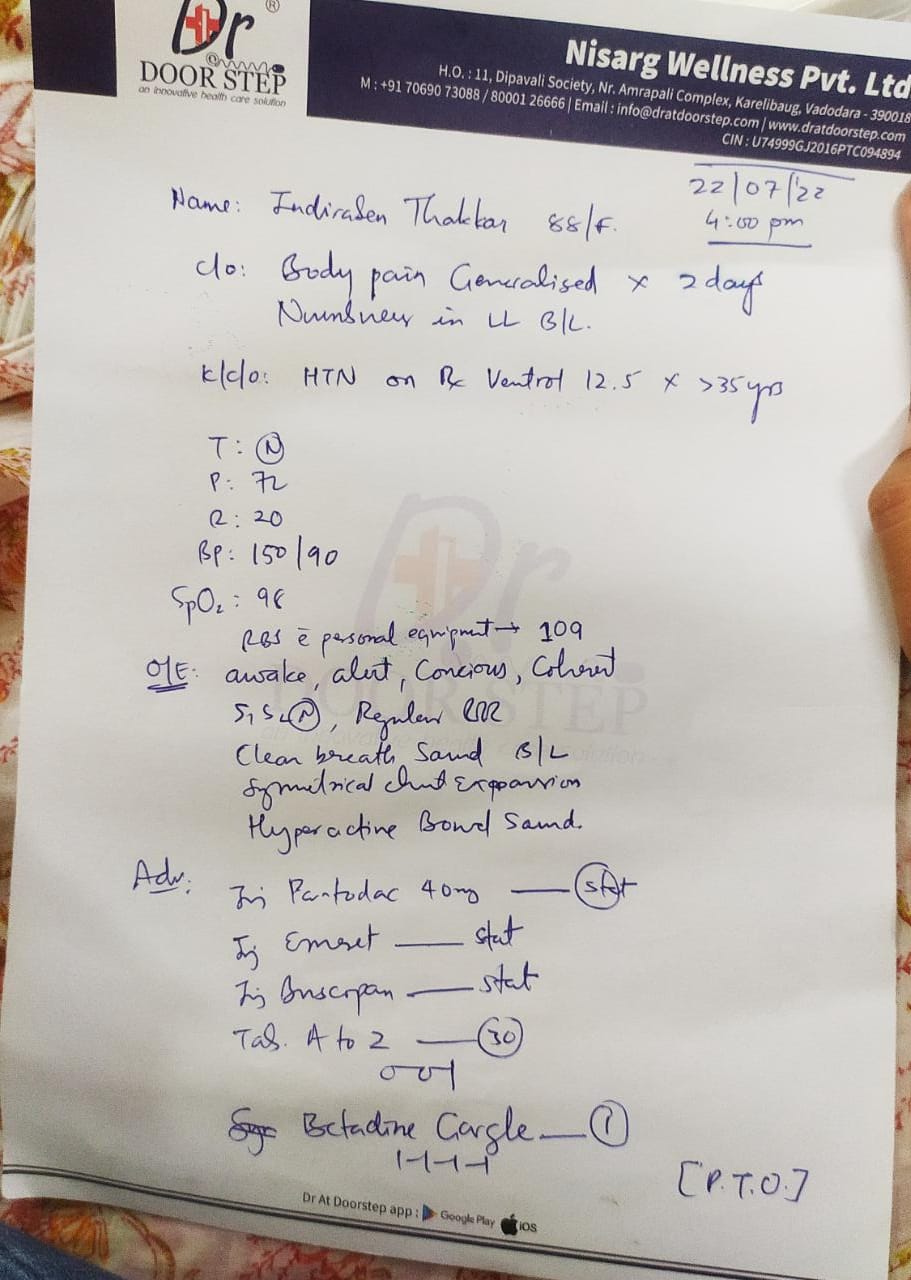 Dr
®
DOOR STEP
an innovative health care solution
Nisarg Wellness Pvt. Ltd
H.O. : 11, Dipavali Society, Nr. Amrapali Complex, Karelibaug, Vadodara - 390018
M : +91 70690 73088 / 80001 26666 | Email : info@dratdoorstep.com | www.dratdoorstep.com
CIN : U74999GJ2016PTC094894
22/07/22
4:00 pm
Name: Indiraben Thakkar 88/F.
c/o: Body pain Generalised x 2 days
Numbness in LL B/L.
k/c/o: HTN on Rx Ventrol 12.5 x >35 yrs
T: N
P: 72
R: 20
BP: 150/90
SpO2: 98
RBS c̄ personal equipment → 109
O/E: awake, alert, Concious, Coherent
S1 S2 N, Regular RRR
Clear breath Sound B/L
Symmetrical chest Exppansion
Hyperactive Bowel Sound.
Adv:
Inj Pantodac 40mg — stat
Inj Emeset — stat
Inj Buscopan — stat
Tab. A to Z — 30
0-0-1
Betadine Gargle — 1
1-1-1-1
[P.T.O.]
Dr At Doorstep app : Google Play iOS